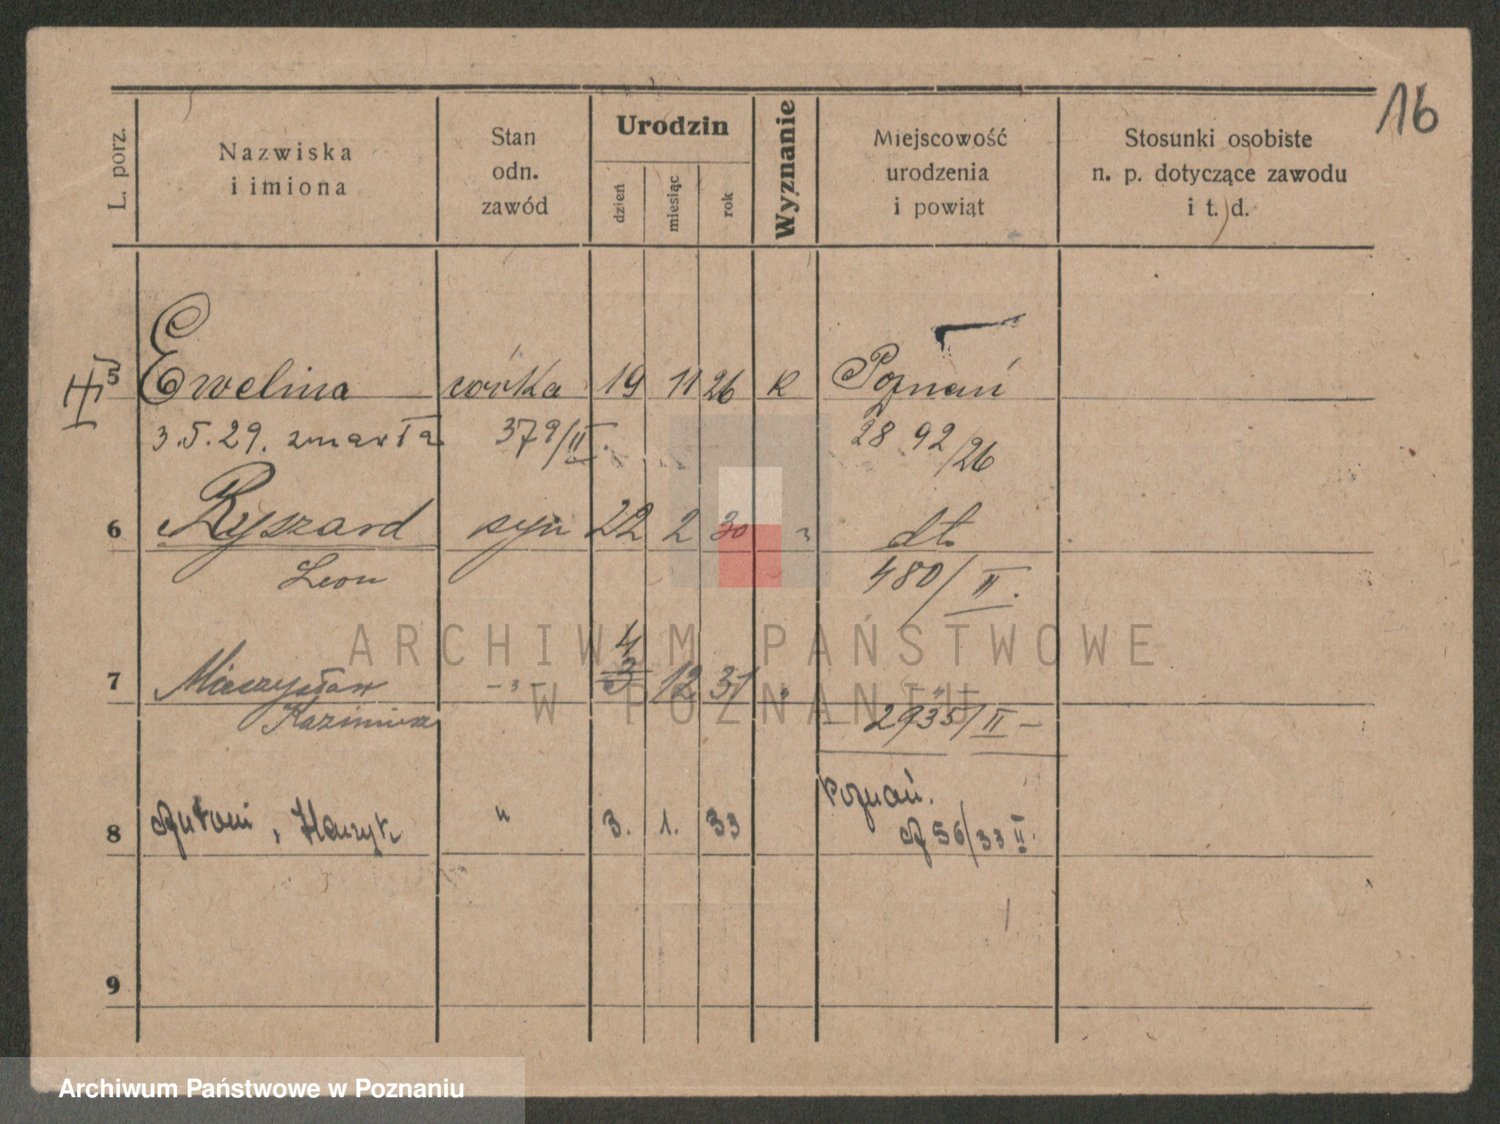 16
L. porz.
Nazwiska
i imiona
Stan
odn.
zawód
Urodzin
dzień
miesiąc
rok
Wyznanie
Miejscowość
urodzenia
i powiąt
Stosunki osobiste
n. p. dotyczące zawodu
i t. d.
5 Ewelina córka 19 11 26 K Poznań
3.5.29. zmarła 379/II. 2892/26
6 Ryszard syn 22 2 30 " dt.
Leon 480/II.
7 Mieczysław - " - 4 3 12 31 " - " -
Kazimierz 2935/II -
Poznań.
8 Antoni, Henryk " 3. 1. 33 56/33 II.
9
ARCHIWUM PAŃSTWOWE
W POZNANIU
Archiwum Państwowe w Poznaniu